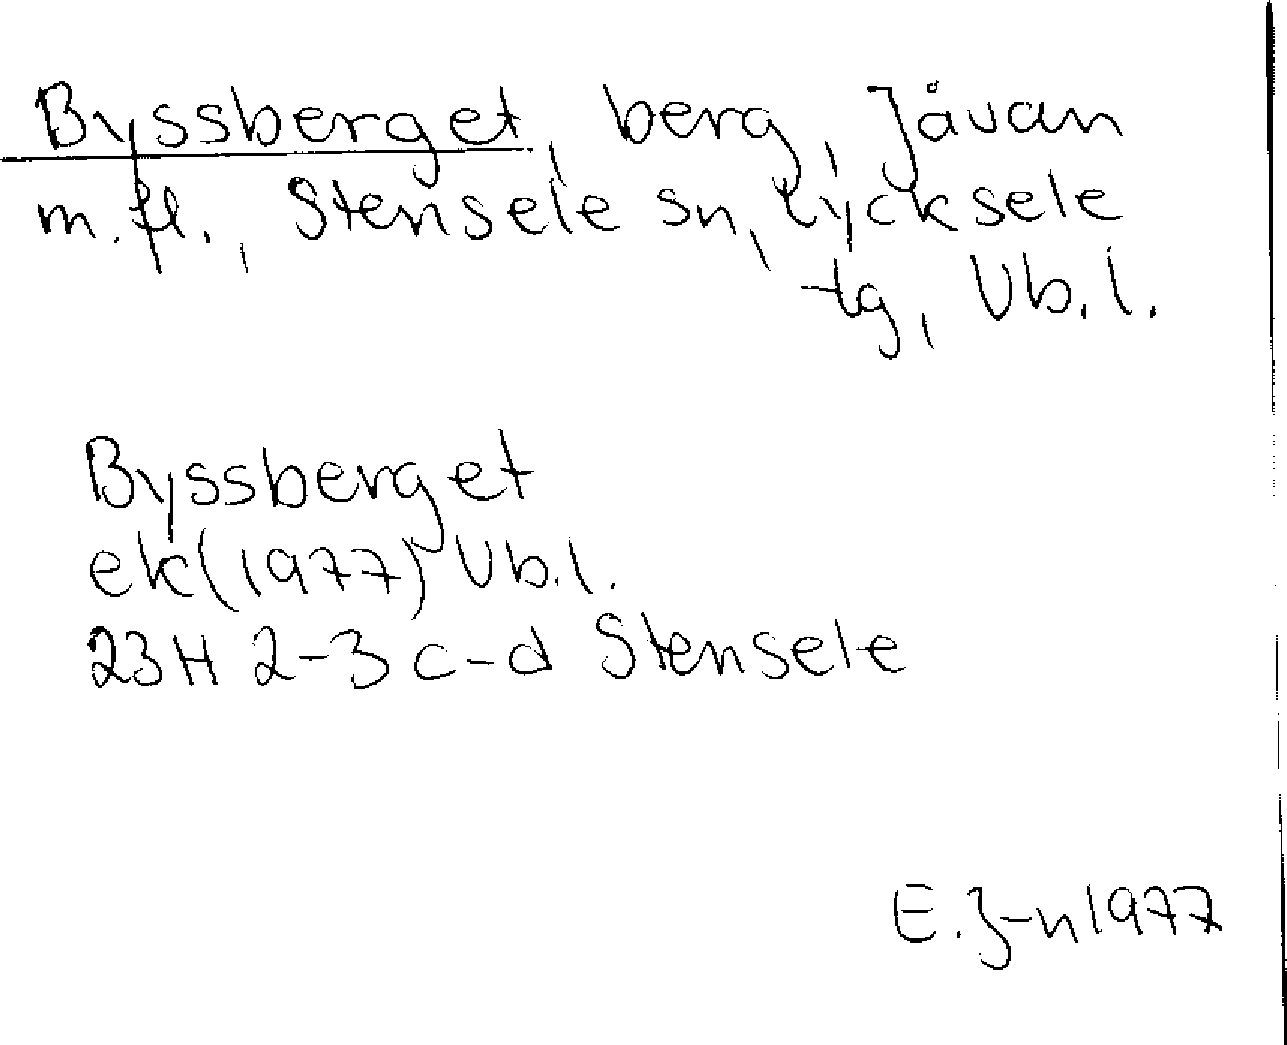 Byssberget, berg, Jåvan
m.fl., Stensele sn, Lycksele
tg, Vb.l.
Byssberget
ek(1977) Vb.l.
23H 2-3 c-d Stensele
E.J-n 1977